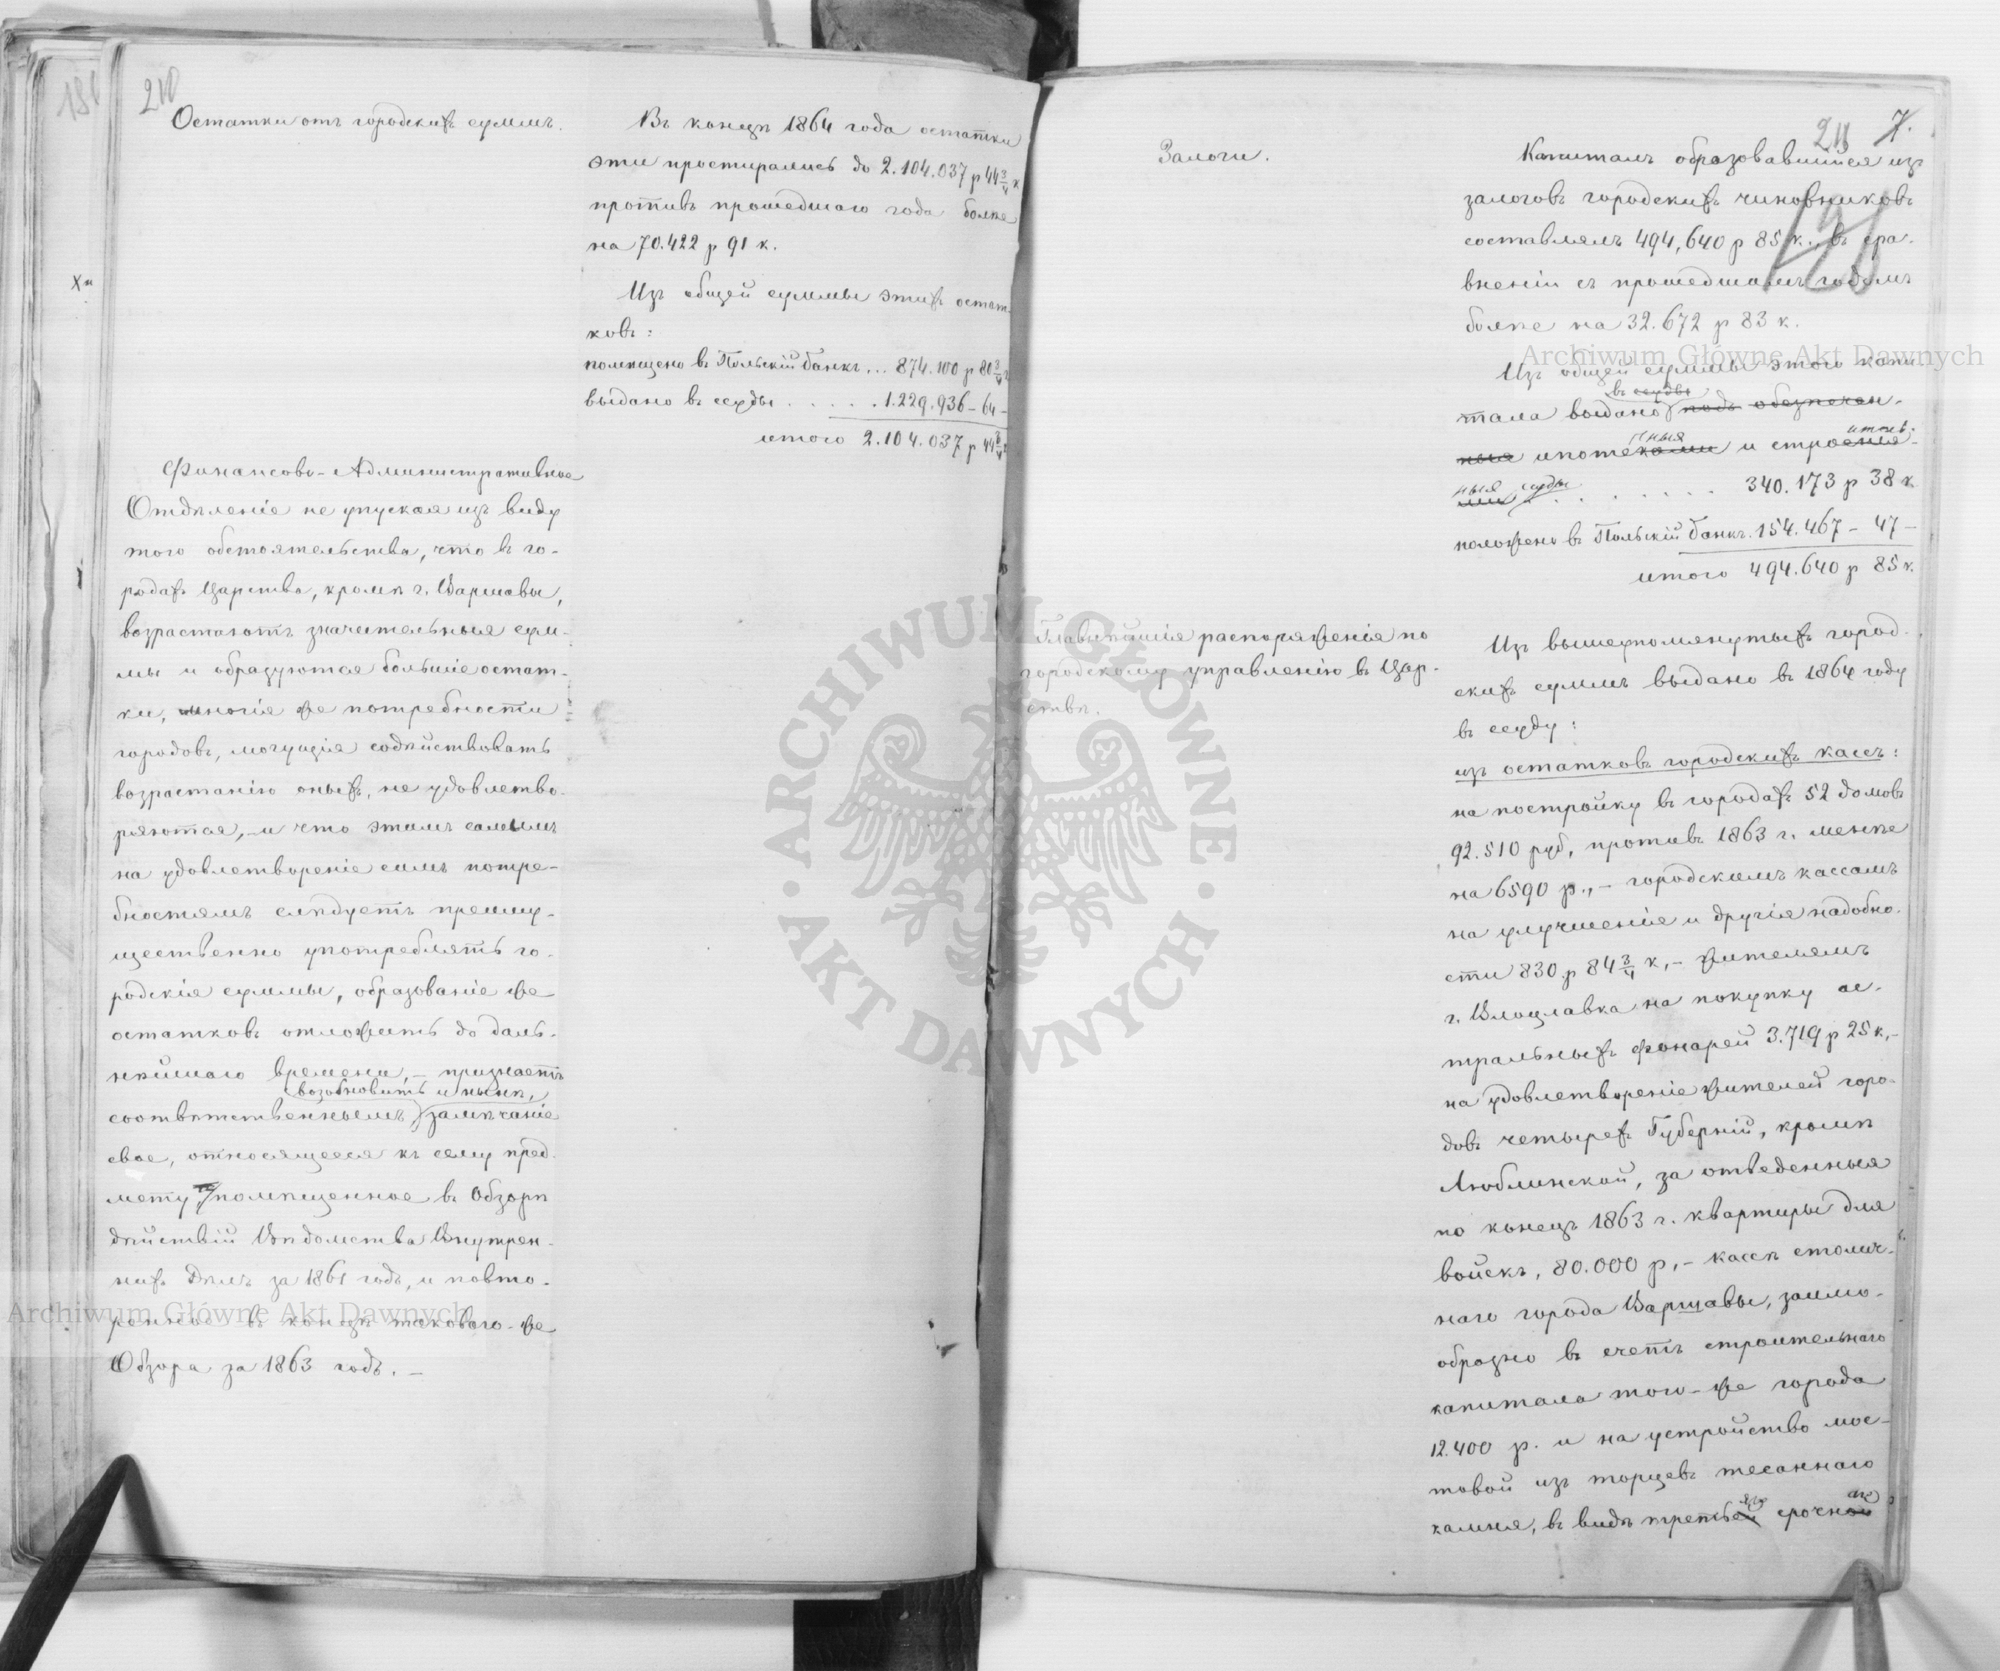 210
Остатки отъ городскихъ суммъ.
Въ концѣ 1864 года остатки
эти простирались до 2.104.037 р 44 3/4 к
противъ прошедшаго года болѣе
на 70.422 р 91 к.
Изъ общей суммы этихъ остат-
ковъ:
помѣщено въ Польскій банкъ... 874.100 р 80 3/4 к
выдано въ ссуды . . . . . 1.229.936 – 64 –
итого 2.104.037 р 44 3/4 к
Финансово-Административное
Отдѣленіе не упуская изъ виду
того обстоятельства, что въ го-
родахъ Царства, кромѣ г. Варшавы,
возрастаютъ значительныя сум-
мы и образуются большіе остат-
ки, многія же потребности
городовъ, могущія содѣйствовать
возрастанію оныхъ, не удовлетво-
ряются, – и что этимъ самымъ
на удовлетвореніе симъ потре-
бностямъ слѣдуетъ преиму-
щественно употреблять го-
родскія суммы, образованіе же
остатковъ отложить до даль-
нѣйшаго времени, – признаетъ
возобновить и нынѣ,
соотвѣтственнымъ замѣчаніе
свое, относящееся къ сему пред-
мету, помѣщенное въ Обзорѣ
дѣйствій Вѣдомства Внутрен-
нихъ Дѣлъ за 1861 годъ, и повто-
ренное въ концѣ таковаго-же
Обзора за 1863 годъ. –
211 7.
Залоги.
Капиталъ образовавшійся изъ
залоговъ городскихъ чиновниковъ
составлялъ 494,640 р 85 к., въ сра-
вненіи съ прошедшимъ годомъ
болѣе на 32.672 р 83 к.
Изъ общей суммы этого капи
въ ссуды
тала выдано подъ обезпечен-
пныя ительс-
ныя ипотеками и строенія-
ныя ссуды
ми . . . . . . . 340.173 р 38 к
положено въ Польскій банкъ. 154.467 – 47 –
итого 494.640 р 85 к.
Главнѣйшія распоряженія по
городскому управленію въ Цар-
ствѣ.
Изъ вышеупомянутыхъ город-
скихъ суммъ выдано въ 1864 году
въ ссуду:
изъ остатковъ городскихъ кассъ:
на постройку въ городахъ 52 домовъ
92.510 руб, противъ 1863 г. менѣе
на 6590 р., – городскимъ кассамъ
на улучшеніе и другія надобно-
сти 830 р 84 3/4 к, – жителямъ
г. Влоцлавка на покупку ас-
тральныхъ фонарей 3.719 р 25 к, –
на удовлетвореніе жителей горо-
довъ четырехъ Губерній, кромѣ
Люблинской, за отведенныя
по конецъ 1863 г. квартиры для
войскъ, 80.000 р, – кассѣ столич-
наго города Варшавы, заимо-
образно въ счетъ строительнаго
капитала того-же города
12.400 р. и на устройство мос-
товой изъ торцевъ тесаннаго
камня, въ видѣ третьей срочной